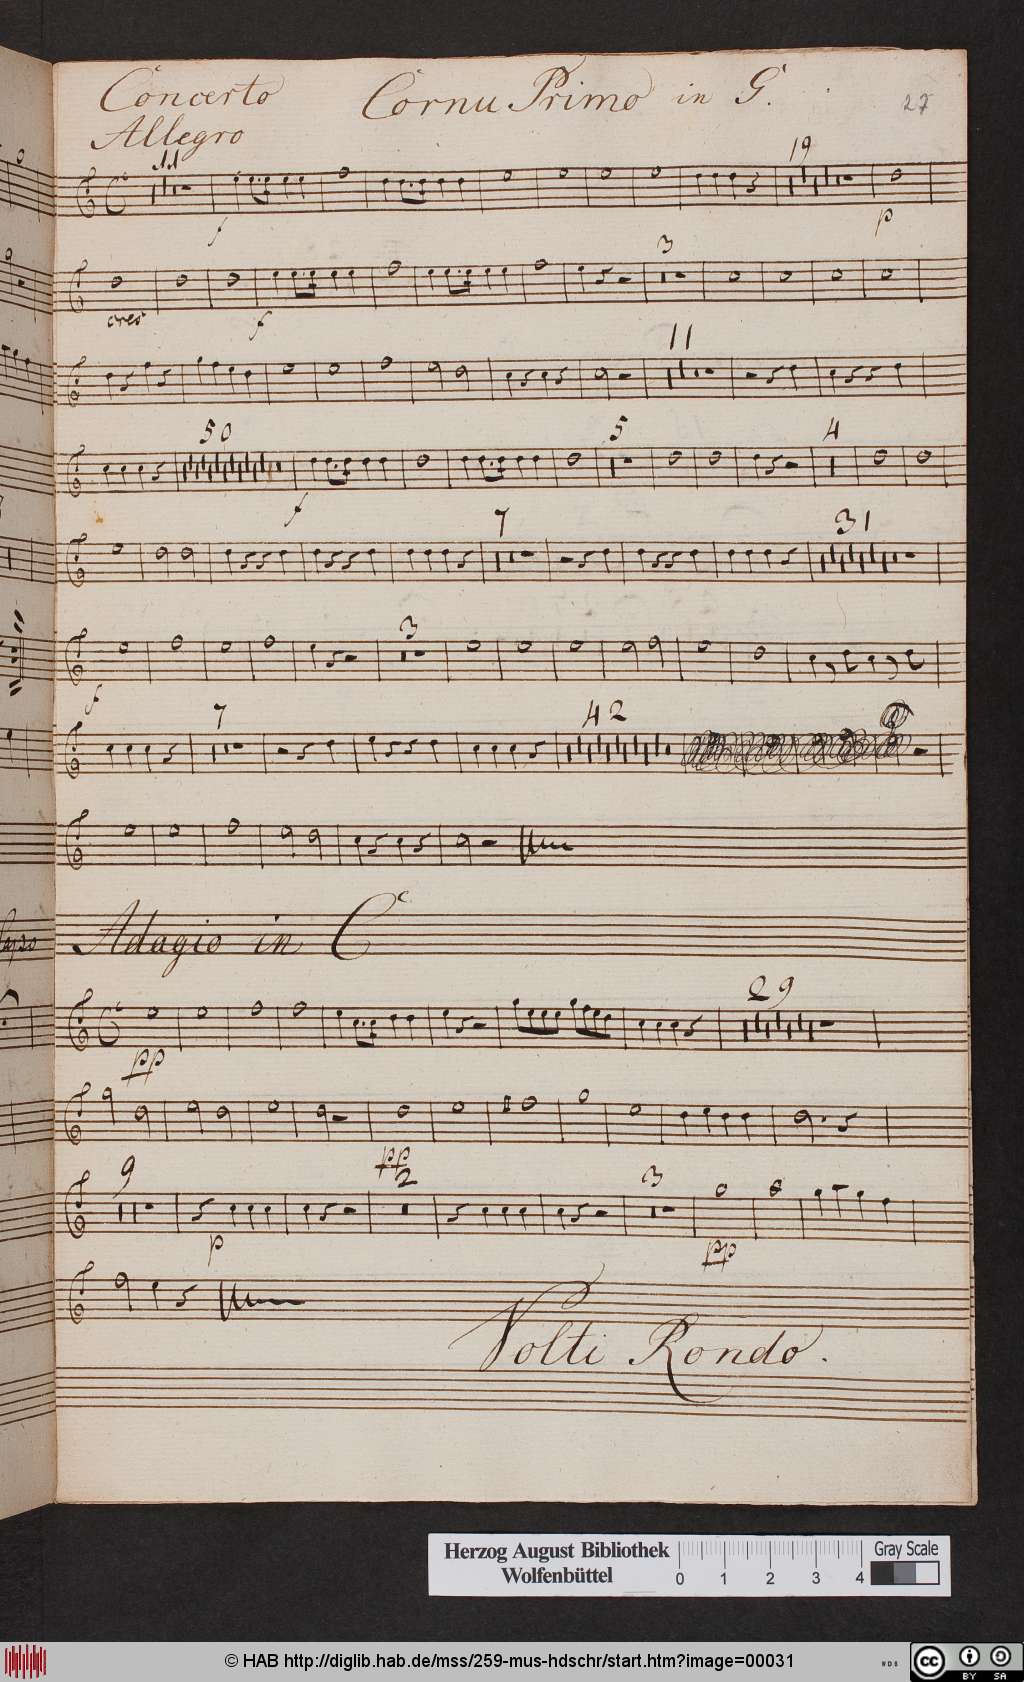 Concerto Cornu Primo in G. 27
Allegro
11
19
f
p
3
cres
f
11
50
5
4
f
7
31
3
f
7
42
Adagio in C
29
pp
pp
9
2
3
p
pp
Volti Rondo.
Herzog August Bibliothek
Wolfenbüttel
Gray Scale
0 1 2 3 4
© HAB http://diglib.hab.de/mss/259-mus-hdschr/start.htm?image=00031
WDB
cc BY SA